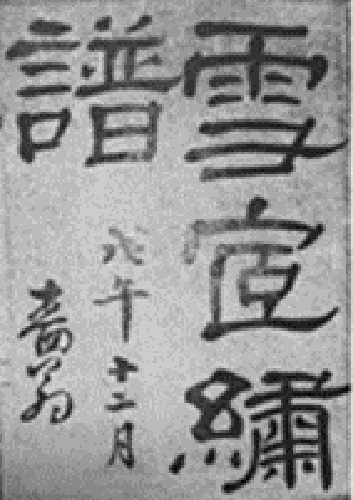 雪宧繡
譜
戊午十二月
嗇翁